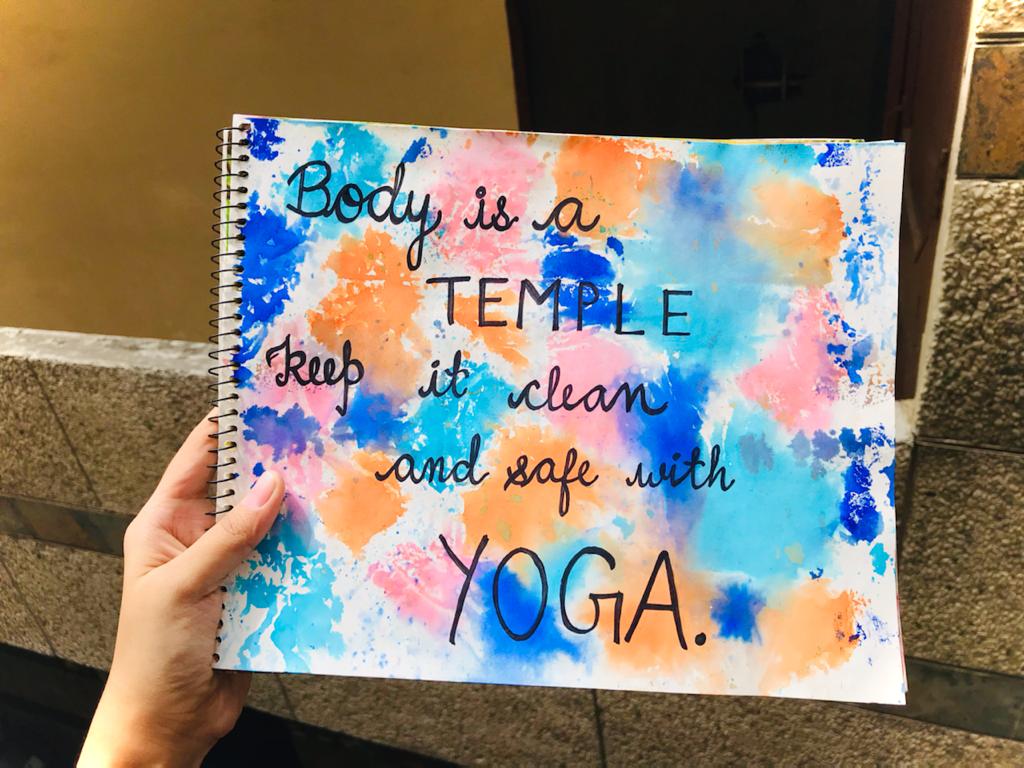 Body is a
TEMPLE
keep it clean
and safe with
YOGA.